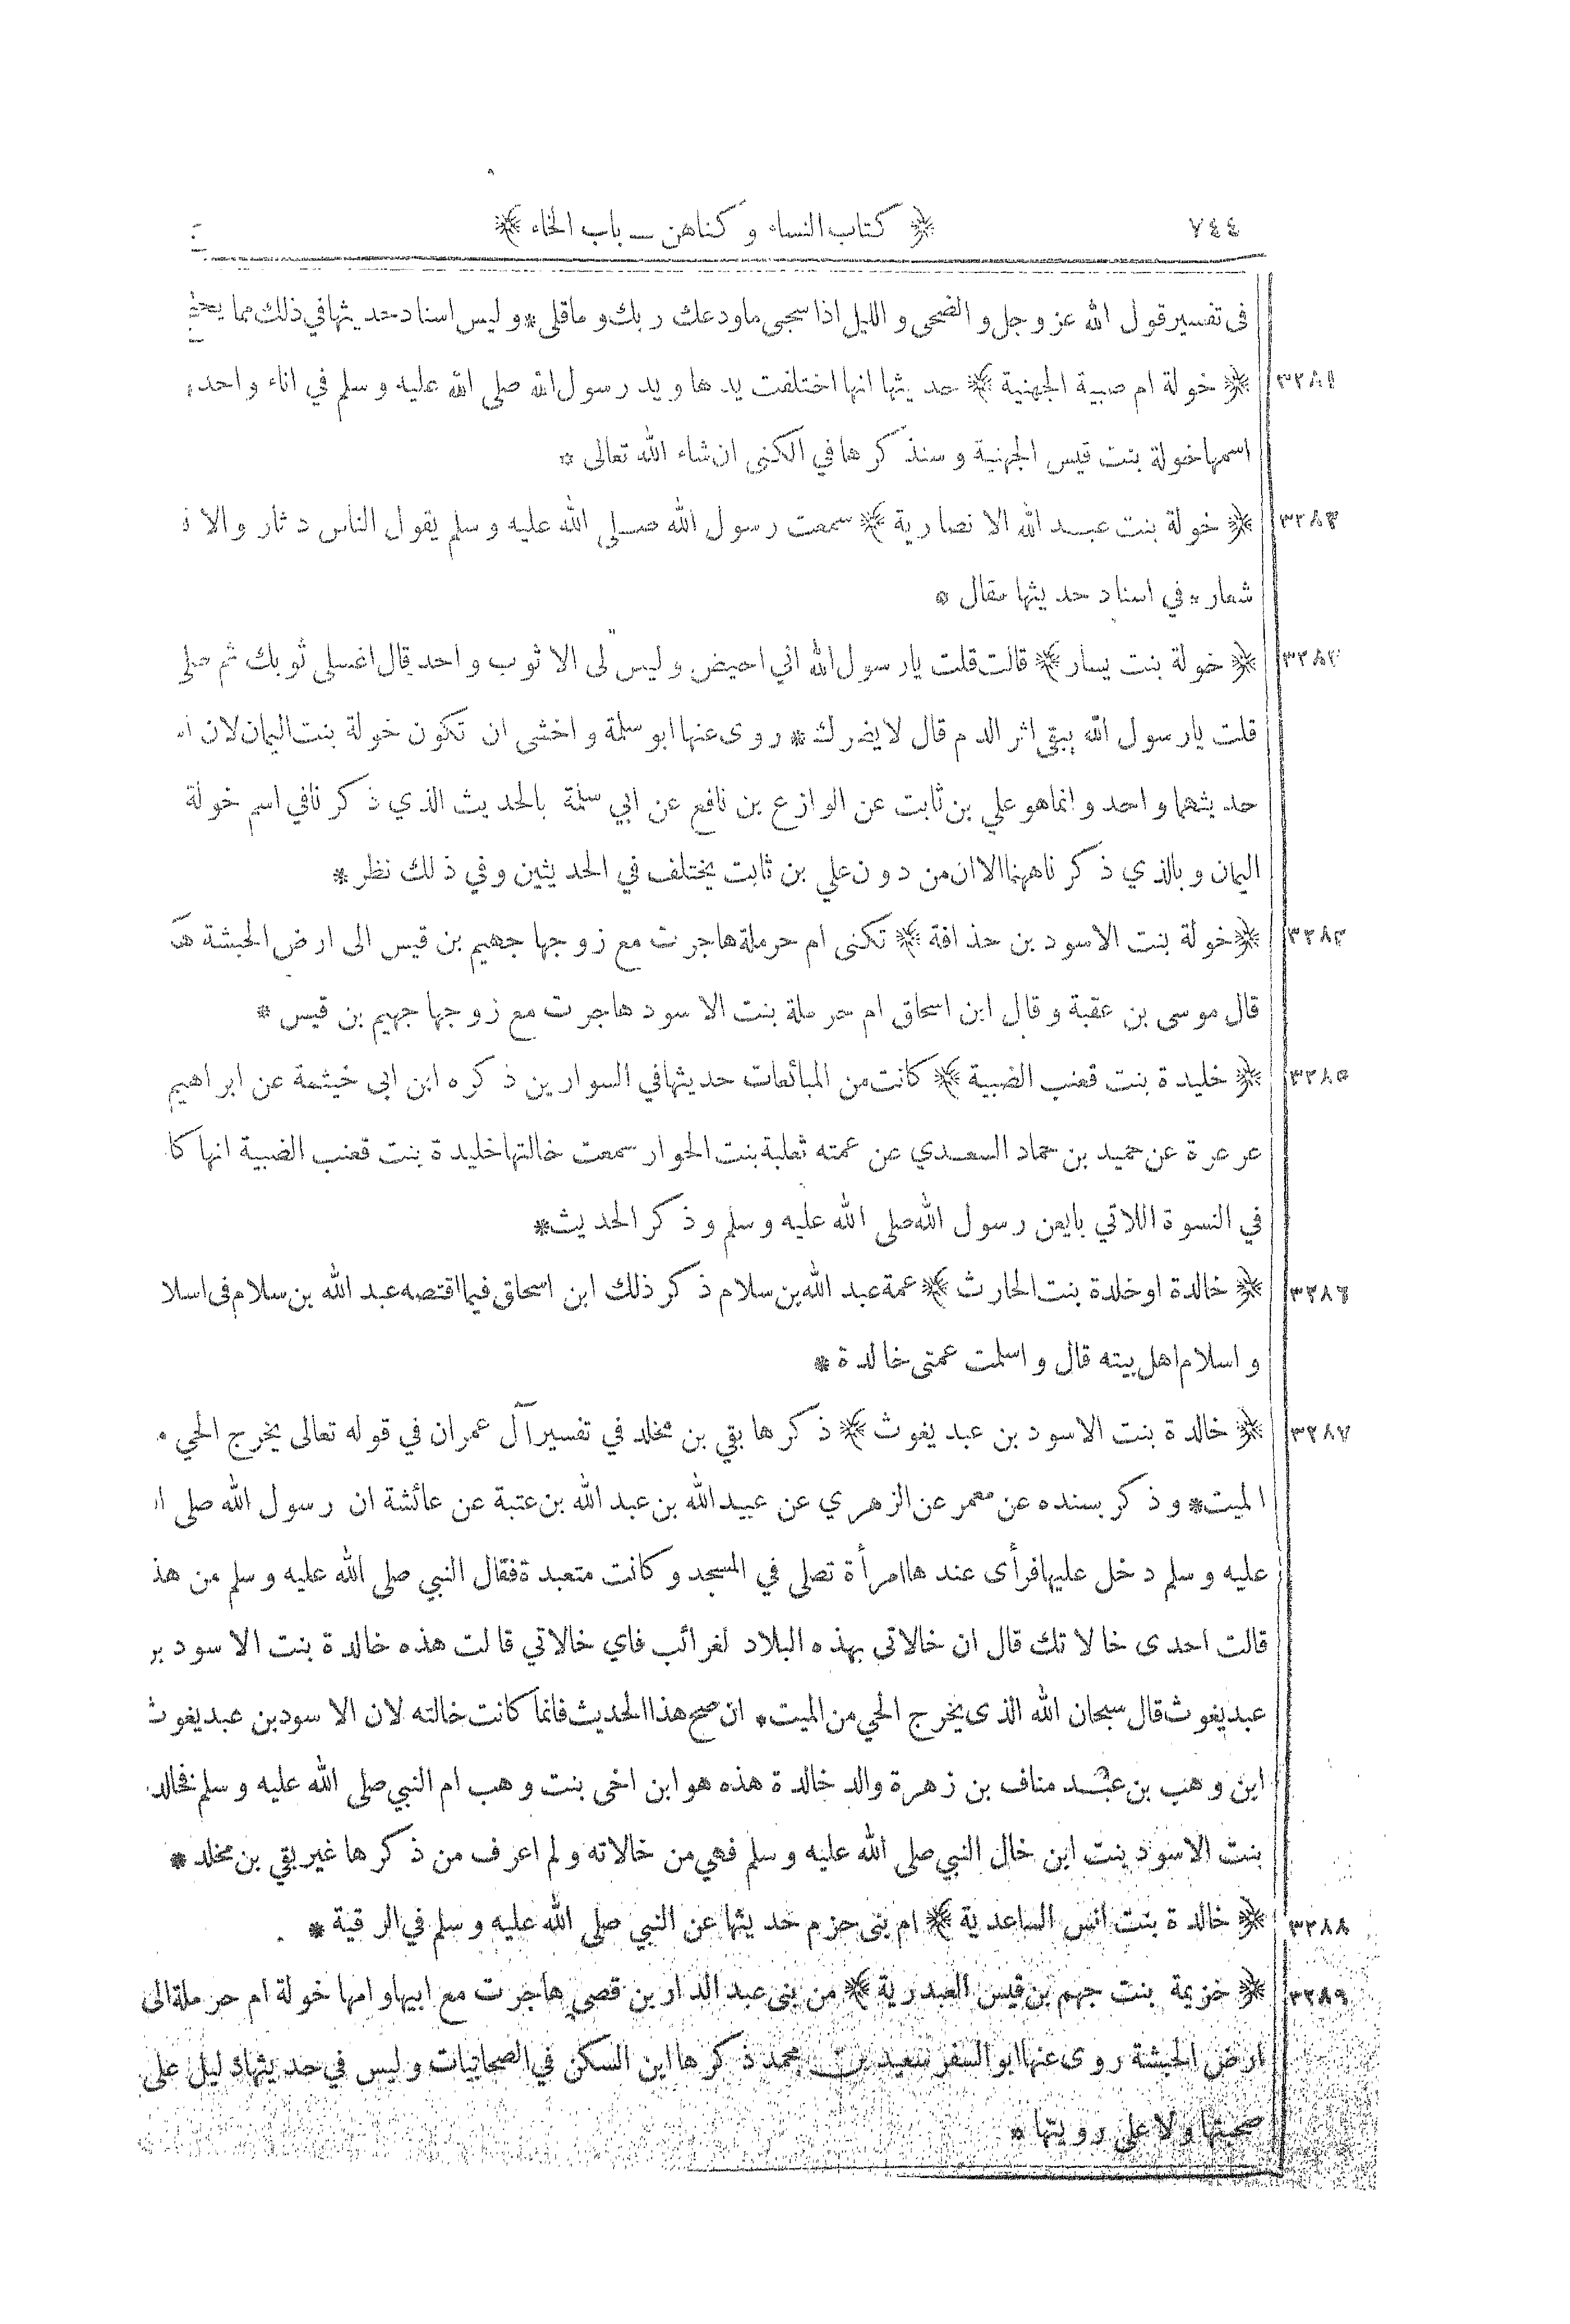 ٧٤٤ ﴿ كتاب النساء و كناهن — باب الخاء ﴾
فى تفسير قول الله عز و جل و الضحى و الليل اذا سجى ما ودعك ربك و ما قلى * و ليس اسناد حديثها في ذلك مما يحتج
٣٢٨١ ﴿ خولة ام صبية الجهنية ﴾ حديثها انها اختلفت يدها و يد رسول الله صلى الله عليه و سلم في اناء واحد
اسمها خولة بنت قيس الجهنية و سنذكرها في الكنى ان شاء الله تعالى *
﴿ خولة بنت عبد الله الانصارية ﴾ سمعت رسول الله صلى الله عليه و سلم يقول الناس دثار و الا
شعار * في اسناد حديثها مقال *
﴿ خولة بنت يسار ﴾ قالت قلت يا رسول الله اني احيض و ليس لى الا ثوب واحد قال اغسلى ثوبك ثم صلى
قلت يا رسول الله يبقى اثر الدم قال لا يضرك * روى عنها ابو سلمة و اخشى ان تكون خولة بنت اليمان لان
حديثهما واحد و انما هو علي بن ثابت عن الوازع بن نافع عن ابي سلمة بالحديث الذي ذكرنا في اسم خولة
اليمان و بالذي ذكرنا ههنا الا ان من دون علي بن ثابت يختلف في الحديثين و في ذلك نظر *
﴿ خولة بنت الاسود بن حذافة ﴾ تكنى ام حرملة هاجرت مع زوجها جهيم بن قيس الى ارض الحبشة
قال موسى بن عقبة و قال ابن اسحاق ام حرملة بنت الاسود هاجرت مع زوجها جهيم بن قيس *
٣٢٨٥ ﴿ خليدة بنت قعنب الضبية ﴾ كانت من المبائعات حديثها في السوارين ذكره ابن ابى خيثمة عن ابراهيم
عرعرة عن حميد بن حماد السعدي عن عمته ثعلبة بنت الحوار سمعت خالتها خليدة بنت قعنب الضبية انها كا
في النسوة اللاتي بايعن رسول الله صلى الله عليه و سلم و ذكر الحديث *
٣٢٨٦ ﴿ خالدة او خلدة بنت الحارث ﴾ عمة عبد الله بن سلام ذكر ذلك ابن اسحاق فيما اقتصه عبد الله بن سلام فى اسلا
و اسلام اهل بيته قال و اسلمت عمتى خالدة *
٣٢٨٧ ﴿ خالدة بنت الاسود بن عبد يغوث ﴾ ذكرها بقي بن مخلد في تفسير آل عمران في قوله تعالى يخرج الحي م
الميت * و ذكر بسنده عن معمر عن الزهري عن عبيد الله بن عبد الله بن عتبة عن عائشة ان رسول الله صلى ا
عليه و سلم دخل عليها فرأى عندها امرأة تصلى في المسجد و كانت متعبدة فقال النبي صلى الله عليه و سلم من هذ
قالت احدى خالاتك قال ان خالاتى بهذه البلاد لغرائب فاي خالاتي قالت هذه خالدة بنت الاسود بر
عبد يغوث قال سبحان الله الذى يخرج الحي من الميت * ان صح هذا الحديث فانما كانت خالته لان الاسود بن عبد يغوث
ابن وهب بن عبد مناف بن زهرة والد خالدة هذه هو ابن اخى بنت وهب ام النبي صلى الله عليه و سلم فخالد
بنت الاسود بنت ابن خال النبي صلى الله عليه و سلم فهي من خالاته و لم اعرف من ذكرها غير بقي بن مخلد *
٣٢٨٨ ﴿ خالدة بنت انس الساعدية ﴾ ام بنى حزم حديثها عن النبي صلى الله عليه و سلم في الرقية *
٣٢٨٩ ﴿ خزيمة بنت جهم بن قيس العبدرية ﴾ من بنى عبد الدار بن قصي هاجرت مع ابيها و امها خولة ام حرملة الى
ارض الحبشة روى عنها ابو السفر سعيد بن محمد ذكرها ابن السكن في الصحابيات و ليس في حديثها دليل على
صحبتها و لا على رويتها *